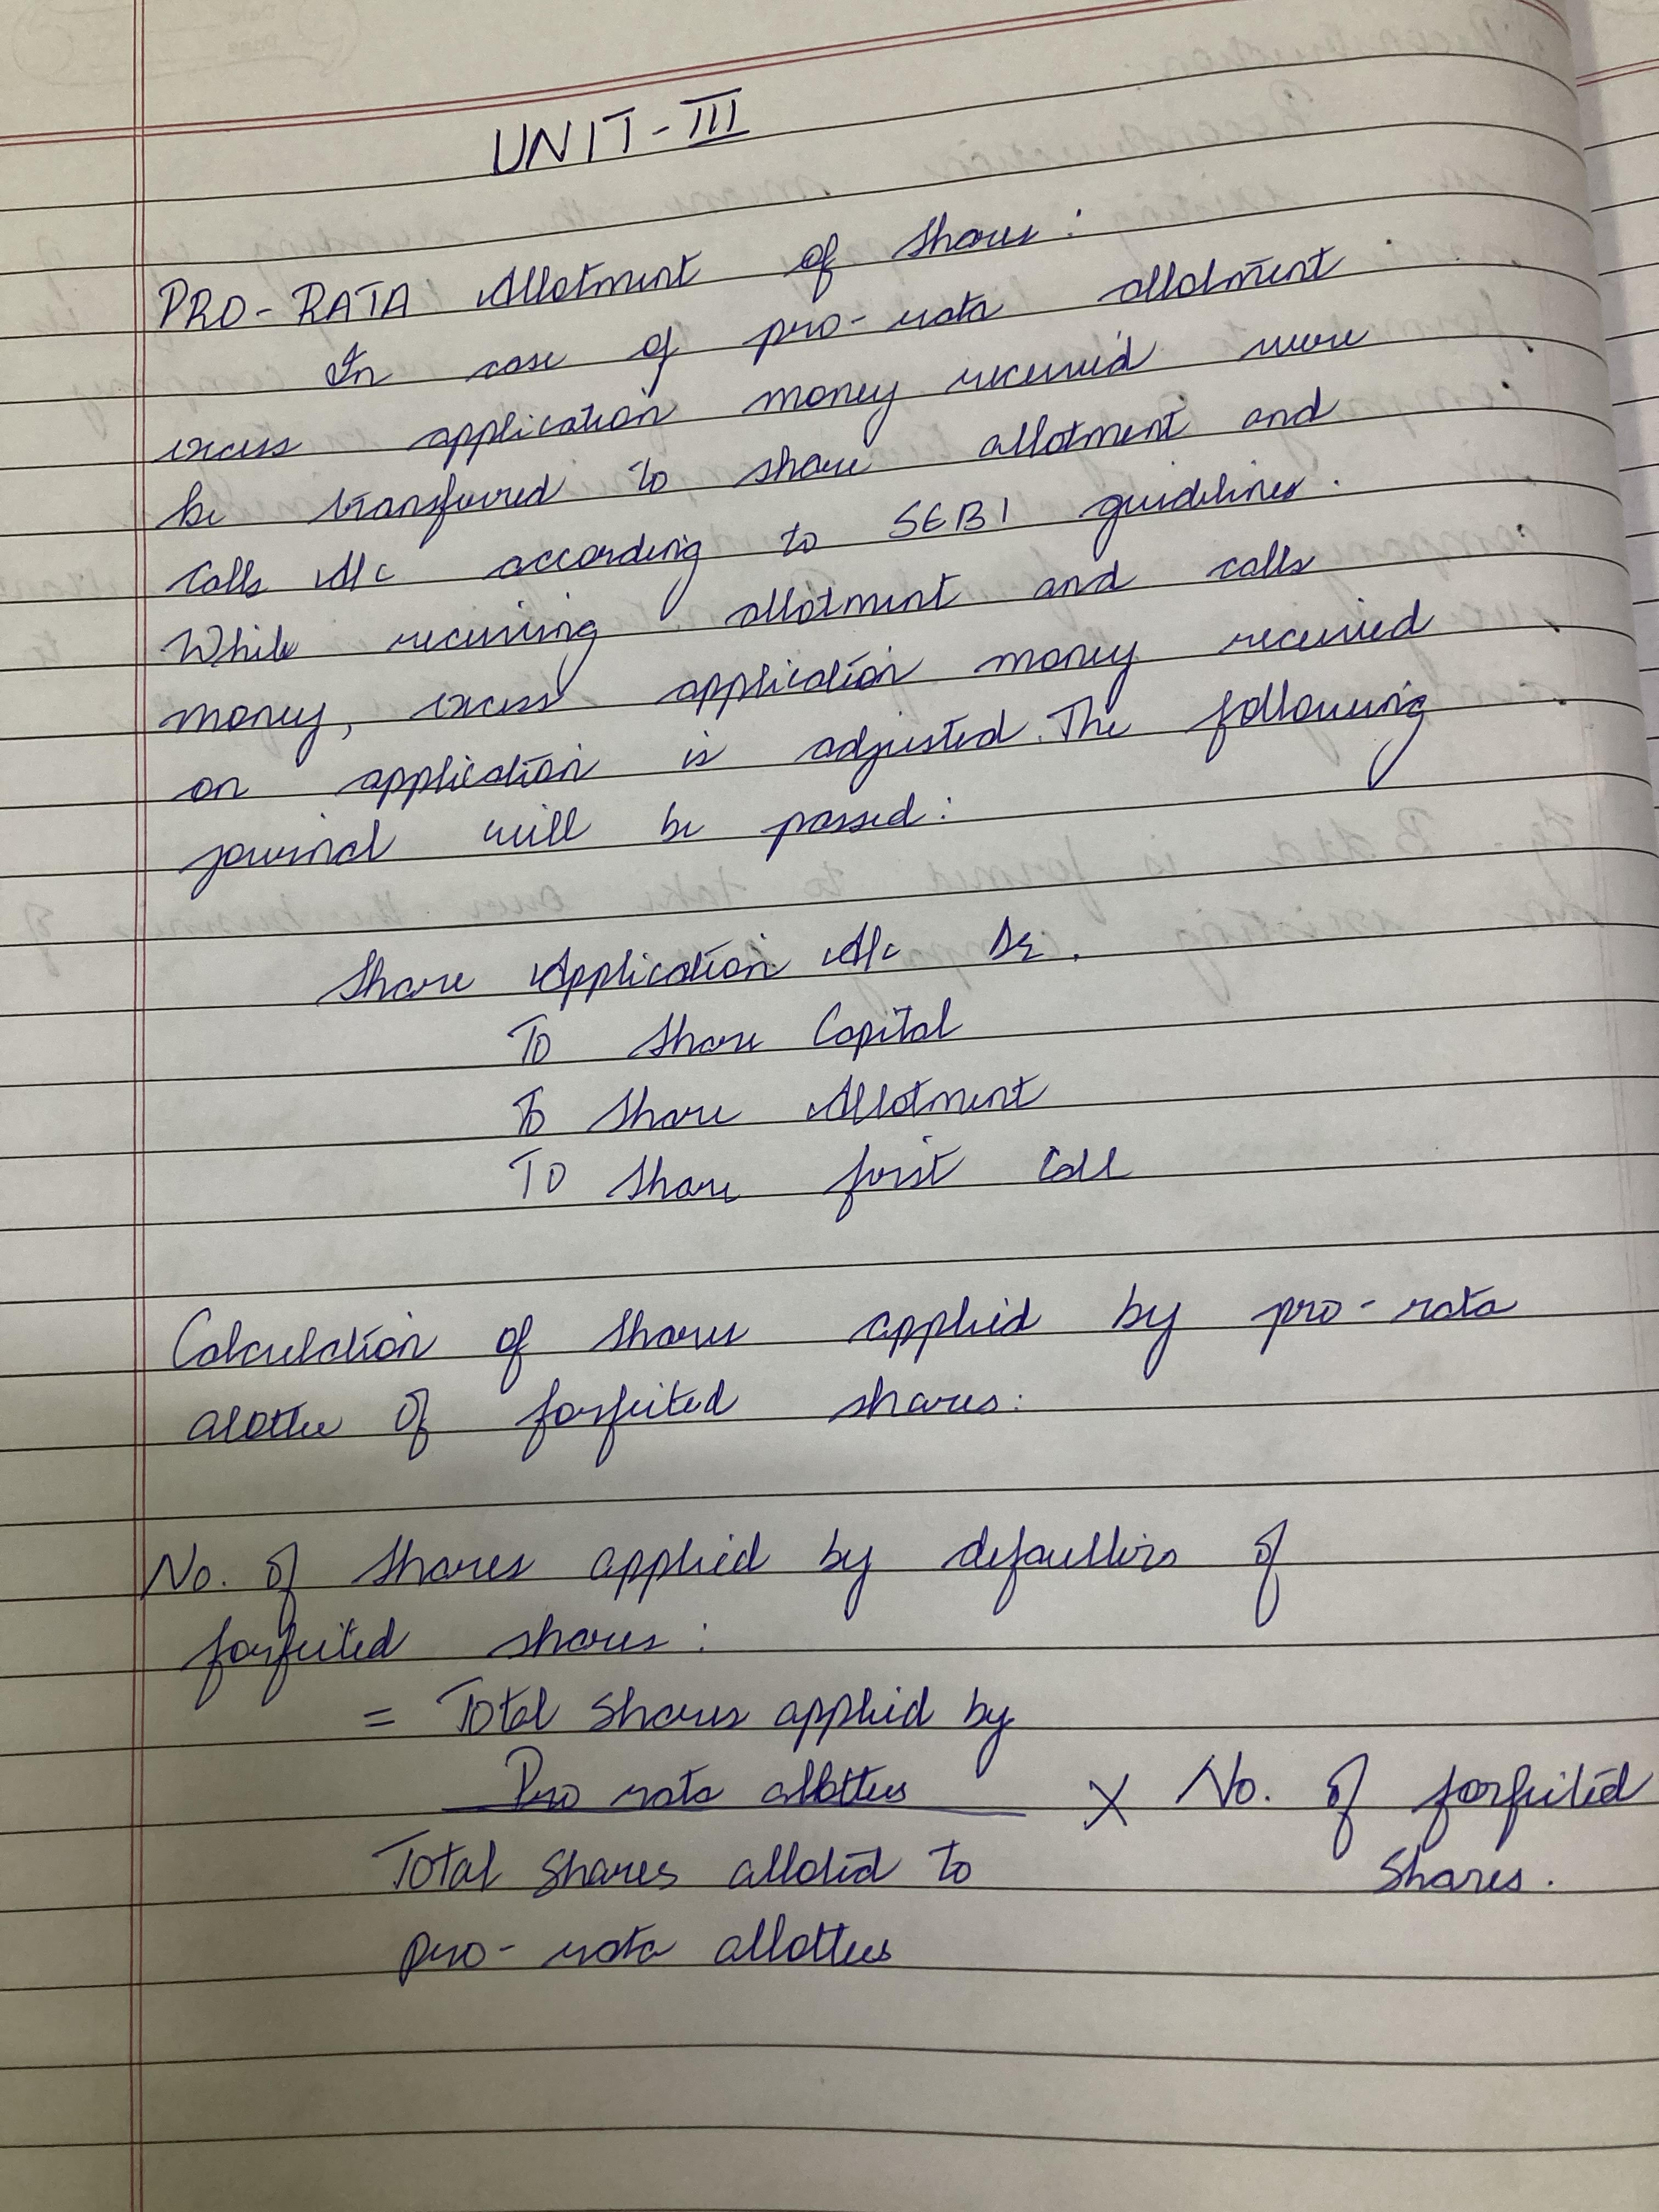 UNIT-III
PRO-RATA Allotment of shares:
In case of pro-rata allotment
excess application money received were
be transferred to share allotment and
Calls A/c according to SEBI guidelines.
While receiving allotment and calls
money, excess application money received
on application is adjusted. The following
journal will be passed:
Share Application A/c Dr.
To Share Capital
To Share Allotment
To Share first Call
Calculation of shares applied by pro-rata
alottee of forfeited shares:
No. of shares applied by defaulters of
forfeited shares:
= Total shares applied by
Pro rata allottees X No. of forfeited
Total shares alloted to Shares.
pro-rata allottees